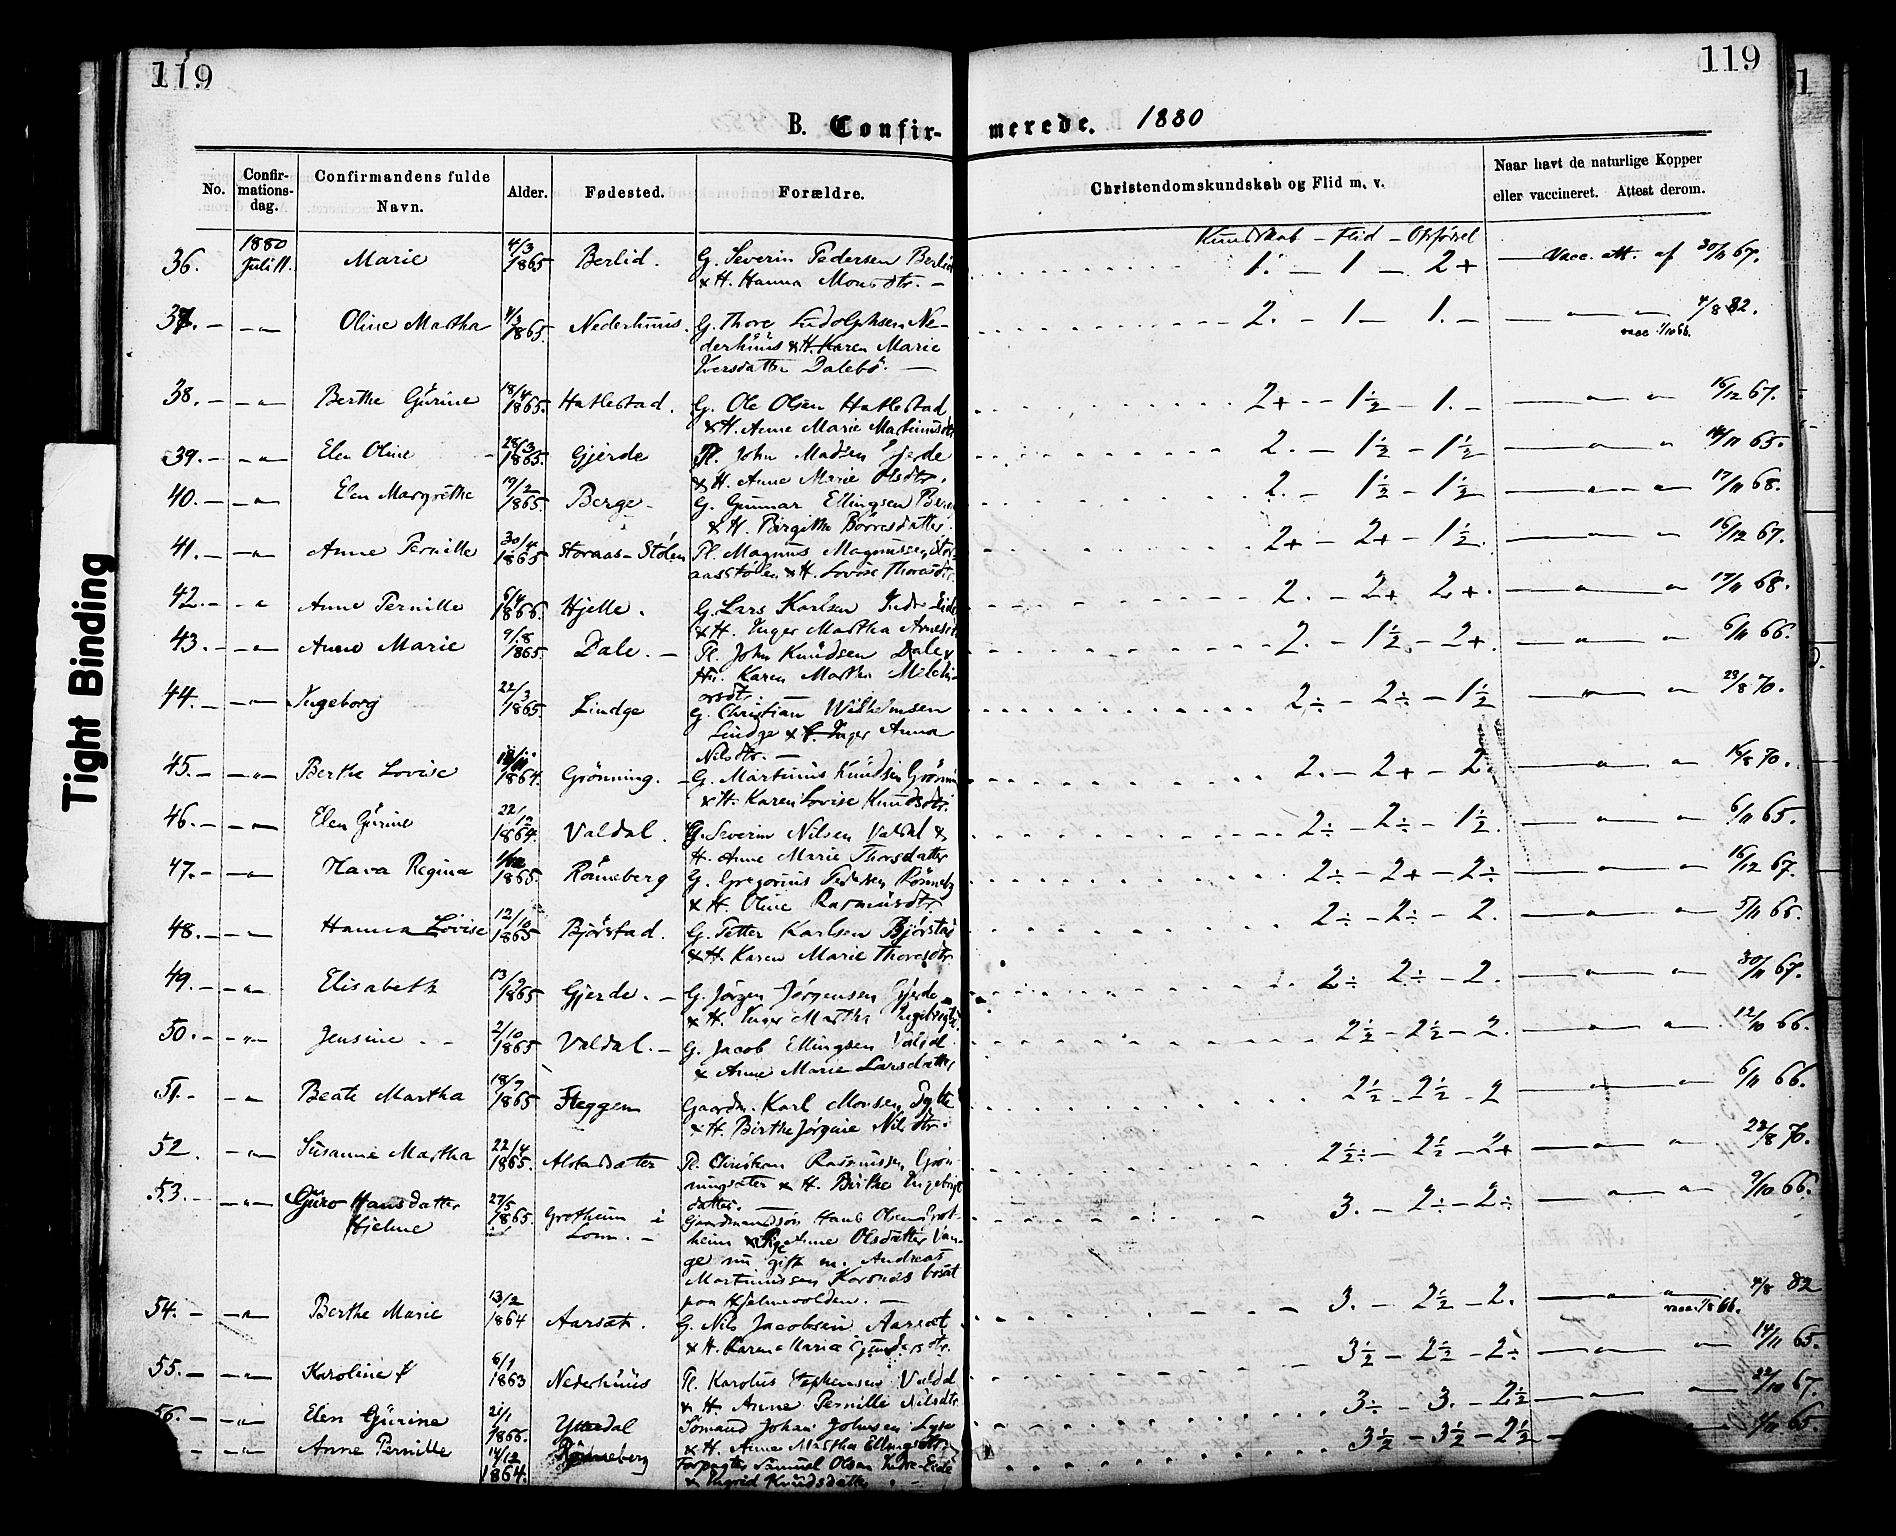 119
119
1
B. Confir- merede. 1880
No.
Confir-
mations-
dag.
Confirmandens fulde
Navn.
Alder.
Fødested.
Forældre.
Christendomskundskab og Flid m. v.
Naar havt de naturlige Kopper
eller vaccineret. Attest derom.
Kundskab – Flid – Opførsel
36. 1880 Juli 11. Marie 4/3 1865 Berlid. G. Severin Pedersen Berlid 1. – 1 – 2+ Vacc. att. af 30/11 67.
& H. Hanna Monsdtr. –
37. – – " – Oline Martha 4/3 1865. Nederhuus. G. Thore Ludolphsen Ne- 2. – 1 – 1. – — " — " — 4/8 82.
derhuus & H. Karen Marie vacc.
Iversdatter Dalebø. —
38. – – " – Berthe Gurine 18/4 1865. Hatlestad. G. Ole Olsen Hatlestad 2+ – 1½ – 1. – — " — " 16/12 67.
& H. Anne Marie Martinusdtr
39. – – " – Elen Oline 28/3 1865. Gjerde Pl. John Madsen Gjerde 2. – 1½ – 1½ — " — " 14/11 65.
& H. Anne Marie Olsdtr.
40. – – " Elen Margrethe 19/2 1865. Berge – G. Gunnar Ellingsen Berge 2. – 1½ – 1½ — " — " — 17/11 68.
& H. Birgitha Børresdatter
41. – – " – Anne Pernille 30/4 1865 Storaas-Stølen Pl. Magnus Magnussen Stor- 2+ – 2+ – 1½. — " — " — 16/12 67.
aasstølen & H. Lovise Thoresdtr.
42. – – " Anne Pernille 6/4 1866. Hjelle. G. Lars Karlsen Indre Eide 2. – 2+ 2+. — " — " 17/11 68.
& H. Inger Martha Arnesdtr
43. – – " – Anne Marie 9/8 1865. Dale. – Pl. John Knudsen Dale & 2. – 1½ – 2+. — " — " 6/11 66.
Hu. Karen Martha Melchi-
orsdtr.
44. – " – Ingeborg 22/3 1865. Lindge G. Christian Wilhelmsen 2÷ – 2÷ – 1½ — " — " — 23/8 70.
Lindge & H. Inger Anna
Nilsdtr. —
45. – – " – Berthe Lovise 1864. Grønning. – G. Martinus Knudsen Grønni 2. – 2+ – 2. — " — " 16/8 70.
& H. Karen Lovise Knudsdtr.
46. – – " – Elen Gurine 22/12 1864. Valdal. G. Severin Nilsen Valdal & 2÷ – 2÷ – 1½. — " — " 6/11 65.
H. Anne Marie Thorsdatter
47. – – " Nava Regina 1865. Rønneberg G. Gregorius Pedersen Rønneb 2÷ – 2+ – 2÷ — " — " 16/12 67.
& H. Oline Rasmusdtr
48. – – " – Hanna Lovise 12/10 1865 Bjørstad. G. Petter Karlsen Bjørstad 2÷ – 2÷ – 2. — " — " — 5/11 66.
& H. Karen Marie Thoresdtr.
49. – – " – Elisabeth 13/9 1865 Gjerde. – G. Jørgen Jørgensen Gjerde 2÷ 2÷ – 2. — " — " — 30/11 67.
& H. Inger Martha Ingebrigts
50. – – " – Jensine – – 2/10 1865 Valdal. – G. Jacob Ellingsen Valdal 2½ – 2½ – 2. — " — " — 12/10 66.
& Anne Marie Larsdatter
51. – – " Beate Martha 18/7 1865 Fleggem Gaardm. Karl Monsen Sylte 2½ – 2½ – 2 — " — " 6/11 66.
& H. Berthe Jørgine Nilsdtr.
52. – " Susanne Martha 22/4 1865. Alstadsæter Pl. Christian Rasmussen Grøn- 2½÷ – 2½ – 2+ — " — " 23/8 70.
ningsæter & H. Birthe Ingebrigt
datter. —
53. – – " – Guro Hansdatter 27/5 1865. Grotheim i Gaardmandssøn Hans Olsen Grot- 3. – 2÷ – 2÷ — " — " — 9/10 66.
Hjelme Lom. – heim & Pige Anne Olsdatter Van-
ge nu gift m. Andreas
Martinussen Korsnæs bosat
paa Hjelmevolden. —
54. – – " – Berthe Marie 13/2 1864 Aarsæt. G. Nils Jacobsen Aarsæt 3. – 2½ – 2. — " — " — 4/8 82
& H. Karen Marie Gundersdtr. vacc. 66.
55. – – " – Karoline 6/1 1863 Nederhuus Pl. Karolus Stephensen Valdal 3½ – 2½ – 2÷ — " — " 14/11 65.
& H. Anne Pernille Nilsdtr
56. – " – Elen Gurine 21/1 1866. Yttredal Tømand Johan Johnsen Lyse 3÷ – 3. – 2½ — " — " 22/10 67.
& H. Anne Martha Ellingsdtr
– – " – Anne Pernille 14/12 1864. Rønneberg Forpagter Samuel Olsen Indre-Eide 3½ – 3½ – 2½ 65.
& Ingrid Knudsdatter
Tight Binding